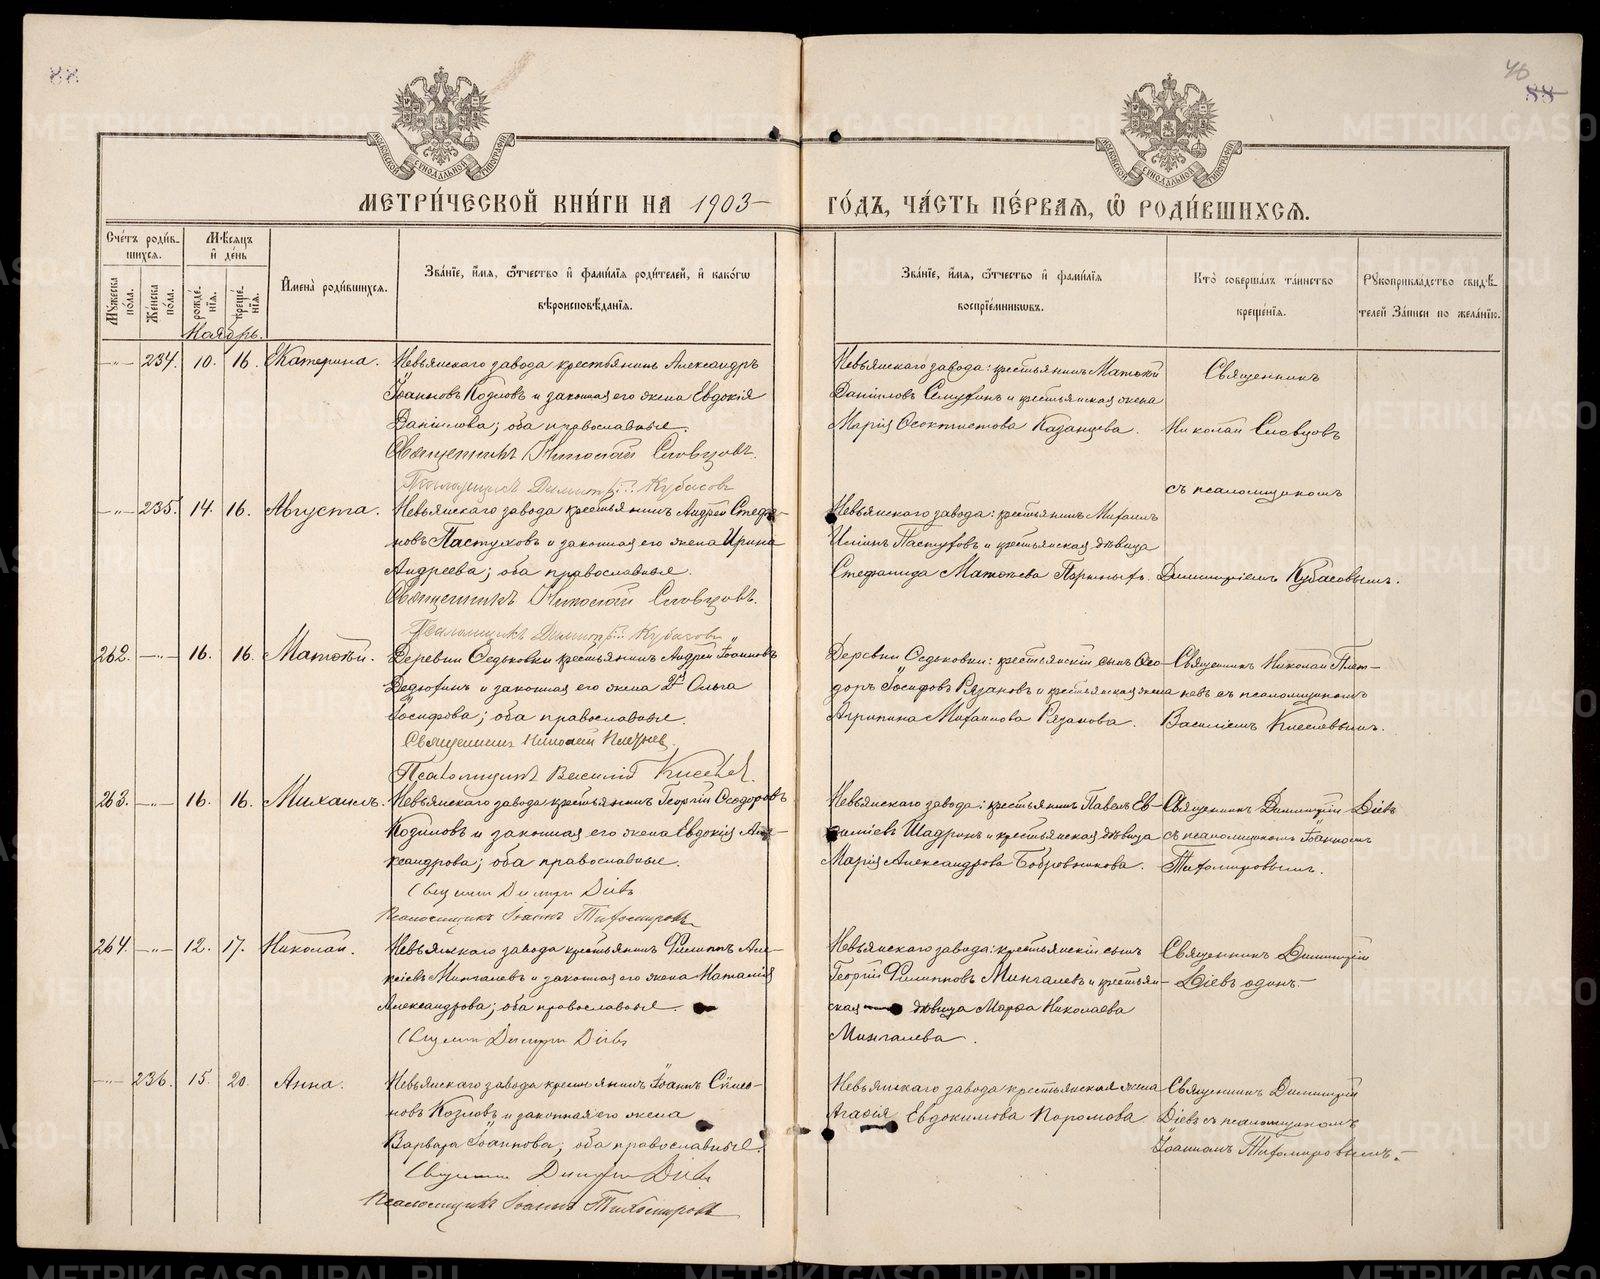 88
40
88
МОСКОВСКОЙ СѴНОДАЛЬНОЙ ТИПОГРАФІИ
МОСКОВСКОЙ СѴНОДАЛЬНОЙ ТИПОГРАФІИ
МЕТРИ́ЧЕСКОЙ КНИ́ГИ НА 1903
ГО́ДЪ, ЧА́СТЬ ПЕ́РВАѦ, Ѡ РОДИ́ВШИХСѦ.
Сче́тъ роди́в-
шихся.
Мѣ́сяцъ
и де́нь
Му́жеска по́ла.
Же́нска по́ла.
рожде́-
нїя.
креще́-
нїя.
Имена̀ роди́вшихся.
Зва́нїе, и́мя, ѻ́тчество и фами́лїя роди́телей, и како́гѡ
вѣроисповѣ́данїя.
Зва́нїе, и́мя, ѻ́тчество и фами́лїя
воспрїе́мниковъ.
Кто̀ соверша́лъ та́инство
креще́нїя.
Рꙋкоприкла́дство свидѣ́-
телей за́писи по жела́нїю.
234. 10. 16. Екатерина.
Невьянскаго завода крестьянинъ Александръ
Іоанновъ Козловъ и законная его жена Евдокія
Даніилова; оба православные.
Священникъ Николай Словцовъ.
Псаломщикъ Димитрій Кубасовъ
Невьянскаго завода: крестьянинъ Матѳей
Даніиловъ и крестьянская жена
Марія Ѳеоктистова Казанцева.
Священникъ
Николай Словцовъ
съ псаломщикомъ
Димитріемъ Кубасовымъ.
235. 14. 16. Августа.
Невьянскаго завода крестьянинъ Андрей Стефа-
новъ Пастуховъ и законная его жена Ирина
Андреева; оба православные.
Священникъ Николай Словцовъ.
Псаломщикъ Димитрій Кубасовъ
Невьянскаго завода: крестьянинъ Михаилъ
Пастуховъ и крестьянская дѣвица
Стефанида Матѳеева
262. 16. 16. Матѳей.
Деревни Ѳедьковки крестьянинъ Андрей Іоанновъ
Дедюхинъ и законная его жена 2я Ольга
Іосифова; оба православные.
Священникъ Николай Плетневъ.
Псаломщикъ Василій Киселевъ.
Деревни Ѳедьковки: крестьянскій сынъ Ѳео-
доръ Іосифовъ Рязановъ и крестьянская жена
Агрипина Михаилова Рязанова.
Священникъ Николай Плет-
невъ съ псаломщикомъ
Василіемъ Киселевымъ.
263. 16. 16. Михаилъ.
Невьянскаго завода крестьянинъ Георгій Ѳеодоровъ
и законная его жена Евдокія Але-
ксандрова; оба православные.
Священникъ Димитрій Діевъ
Псаломщикъ Іоаннъ Тихомировъ
Невьянскаго завода: крестьянинъ Павелъ Ев-
Шадринъ и крестьянская дѣвица
Марія Александрова Бобровникова.
Священникъ Димитрій Діевъ
съ псаломщикомъ Іоанномъ
Тихомировымъ.
264. 12. 17. Николай.
Невьянскаго завода крестьянинъ Филиппъ Але-
ксіевъ Мингалевъ и законная его жена Наталія
Александрова; оба православные.
Священникъ Димитрій Діевъ
Невьянскаго завода: крестьянскій сынъ
Георгій Филипповъ Мингалевъ и крестьян-
ская дѣвица Марѳа Николаева
Мингалева.
Священникъ Димитрій
Діевъ одинъ.
236. 15. 20. Анна.
Невьянскаго завода крестьянинъ Іоаннъ Симео-
новъ Козловъ и законная его жена
Варвара Іоаннова; оба православные.
Священникъ Димитрій Діевъ
Псаломщикъ Іоаннъ Тихомировъ
Невьянскаго завода крестьянская жена
Агаѳія Евдокимова Поромова
Священникъ Димитрій
Діевъ съ псаломщикомъ
Іоанномъ Тихомировымъ.
METRIKI.GASO-URAL.RU